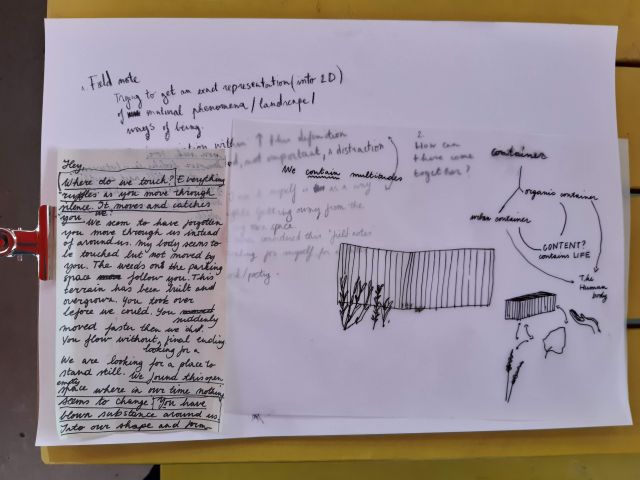 1. Field note
Trying to get an exact representation (into 2D)
of natural phenomena/landscape/
ways of being.
within ↑ this definition
not important, a distraction
We contain multitudes
myself is as a way
getting away from the
space
this "field notes
for myself for
/poetry.
2.
How can
these come
together?
container
organic container
urban container
CONTENT?
contains LIFE
The
Human
body
Hey,
Where do we touch? Everything
ruffles as you move through
silence. It moves and catches
you we.
We seem to have forgotten
you move through us instead
of around us. my body seems to
be touched but not moved by
you. The weeds on the parking
space follow you. This
terrain has been built and
overgrown. You took over
before we could. You
suddenly
moved faster then we did.
You flow without, final ending
looking for a
We are looking for a place to
stand still. We found this open
empty
space where in our time nothing
seems to change. You have
blown substance around us.
Into our shape and form